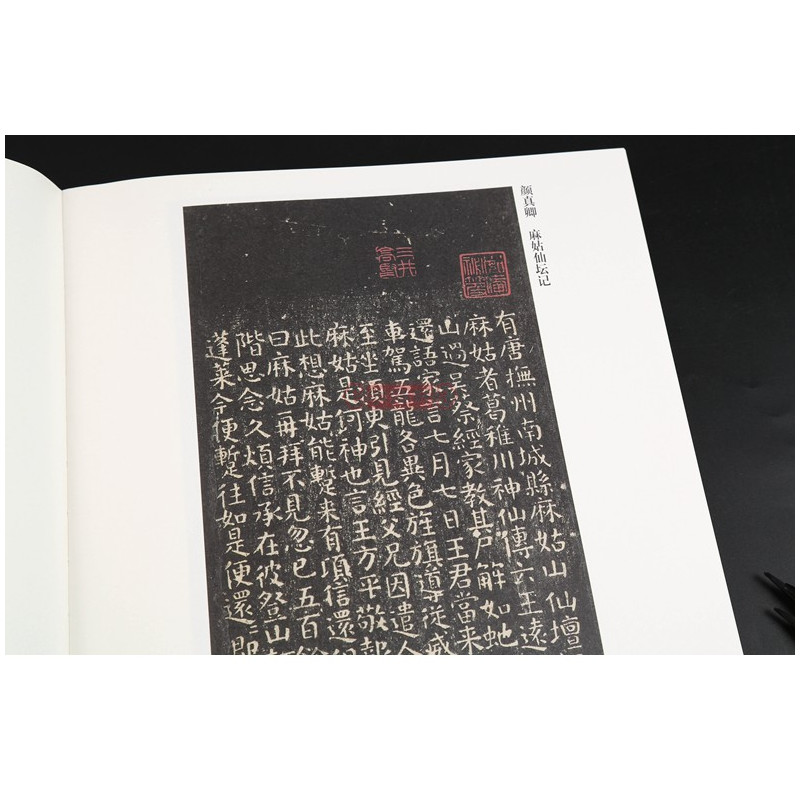 颜真卿 麻姑仙坛记
三井
有唐撫州南城縣麻姑山仙壇
麻姑者葛稚川神仙傳云王遠
山過吳蔡經家教其尸解如虵
還語家言七月七日王君當来
車駕五龍各異色旌旗導従威
至坐須臾引見經父兄因遣人
麻姑是何神也言王方平敬報
此想麻姑能蹔来有頃信還
曰麻姑再拜不見忽已五百
階思念久煩信承在彼登山
蓬萊今便蹔往如是便還